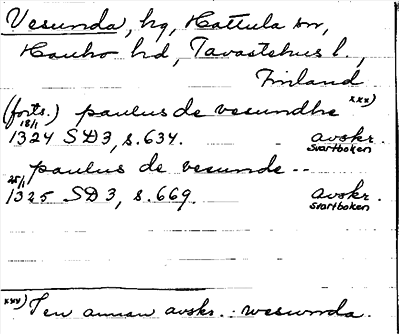 Vesunda, hg, Hattula sn,
Hauho hd, Tavastehus l.,
Finland
(forts.) paulus de vesundhe xxx)
18/1
1324 SD3, s.634. avskr.
Svartboken
paulus de vesunde --
25/1
1325 SD3, s.669. avskr.
Svartboken
xxx) I en annan avskr.: wesunda.